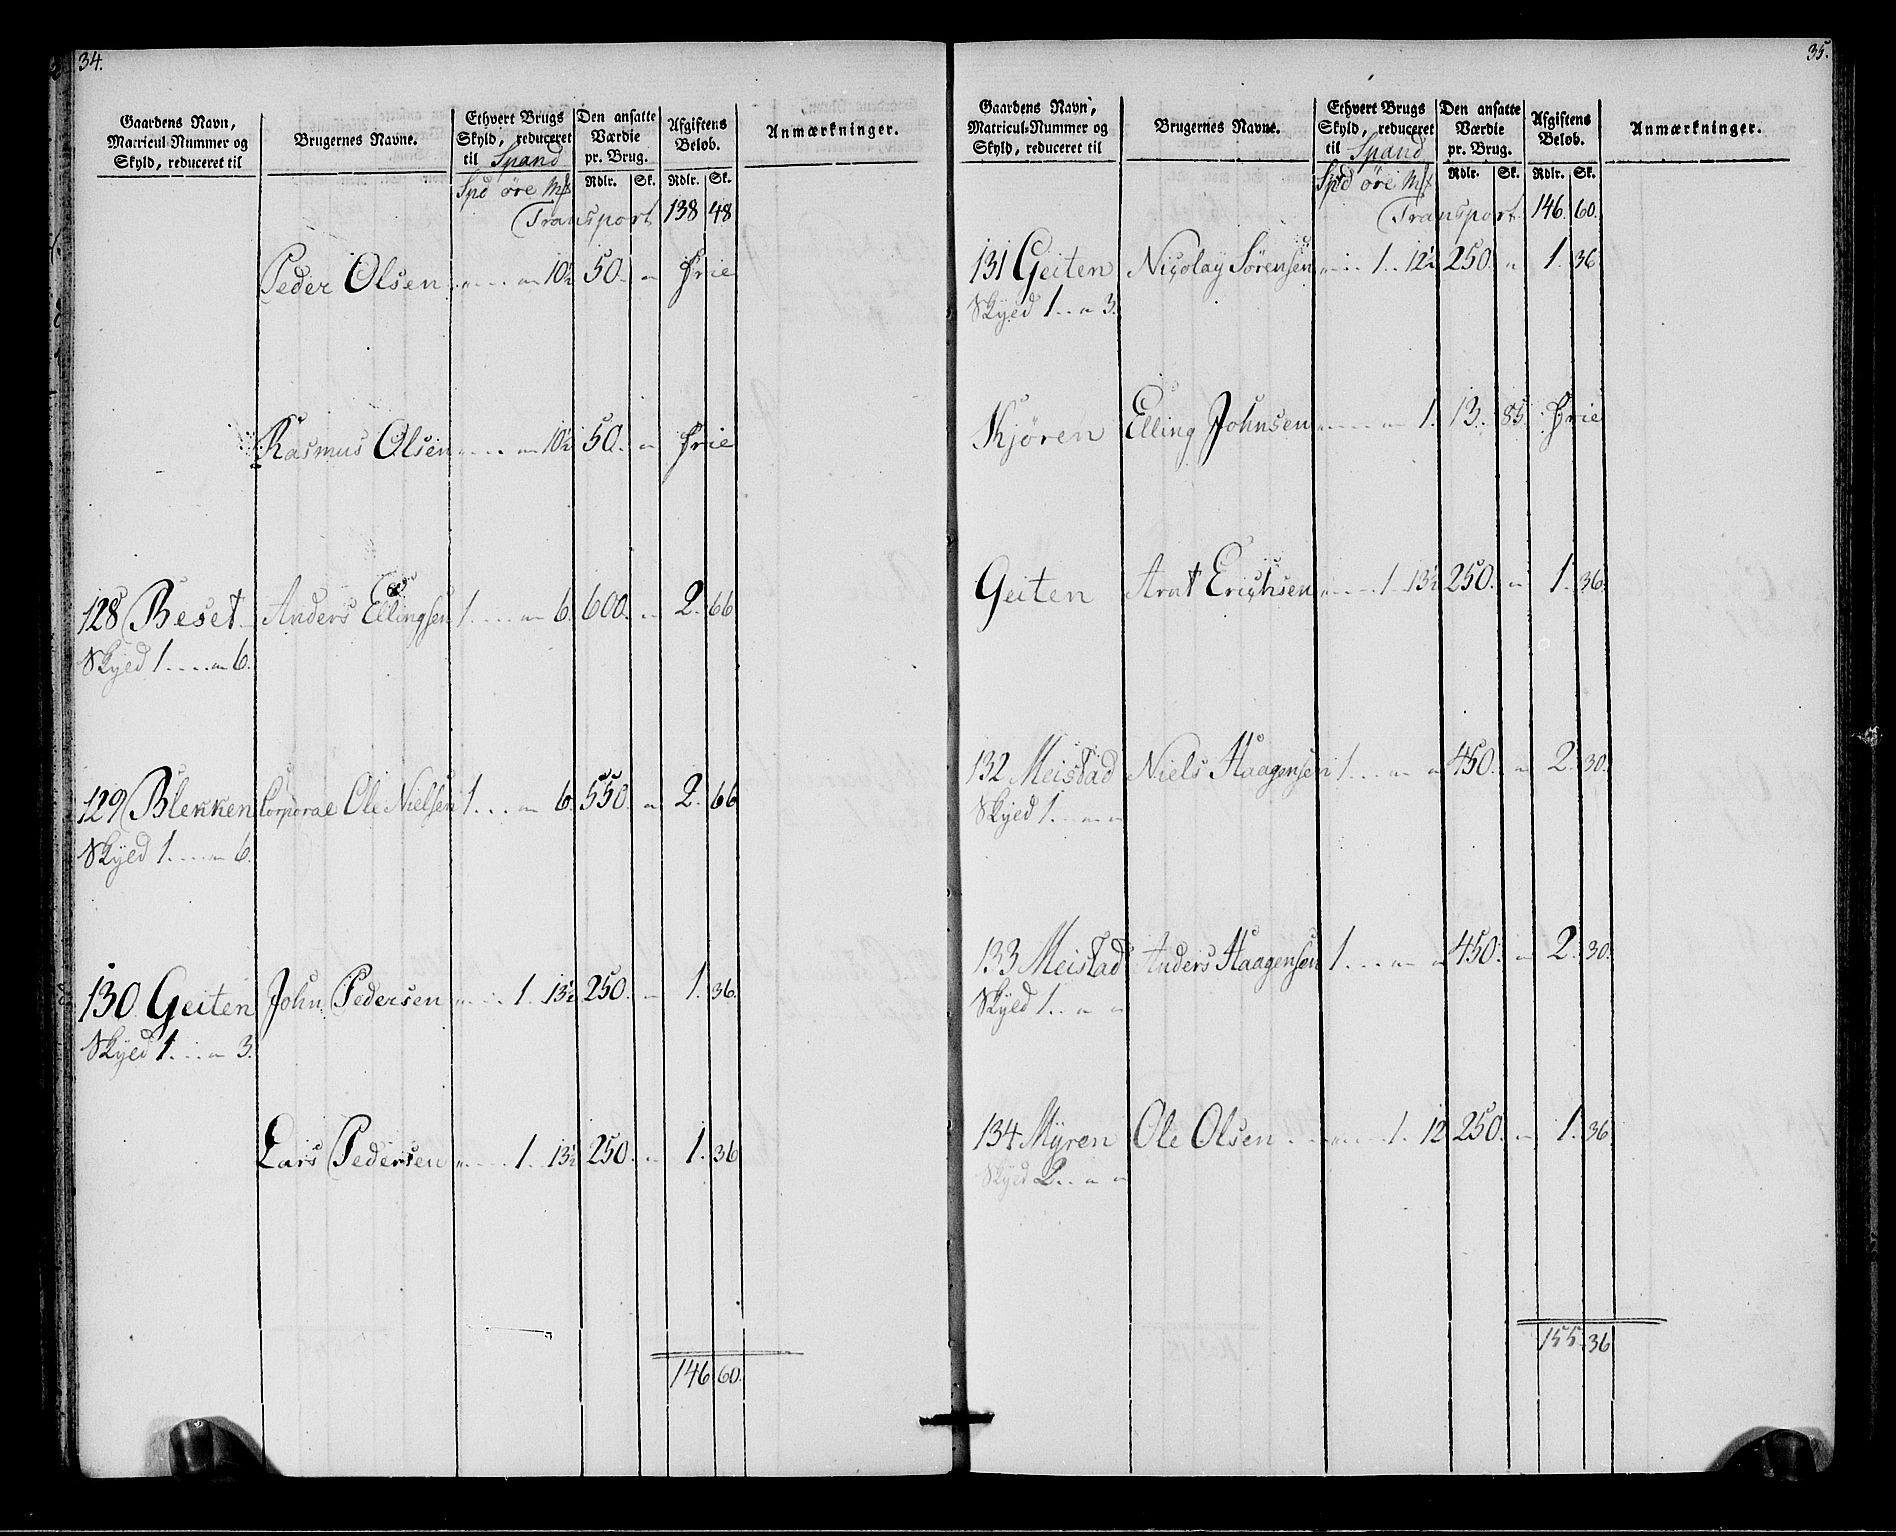 34.
Gaardens Navn, Matricul-Nummer og Skyld, reduceret til | Brugernes Navne. | Ethvert Brugs Skyld, reduceret til Spand | Den ansatte Værdie pr. Brug. | Afgiftens Beløb. | Anmærkninger.
Spd øre Mk | Rdlr. | Sk. | Rdlr. | Sk.
Transport 138 48
Peder Olsen 10½ 50. " frie
Rasmus Olsen 10½ 50. " frie
128 Beset Anders Ellingsen 1 . . . " 6. 600. " 2. 66
Skyld 1 . . . " 6.
129 Blekken Corporal Ole Nielsen 1 . . . " 6. 550. " 2. 66
Skyld 1 . . . " 6.
130 Geiten John Pedersen " . . . 1. 13½ 250. " 1. 36.
Skyld 1 . . . " 3.
Lars Pedersen " . . . 1. 13½ 250. " 1. 36
146 60.
35.
Gaardens Navn, Matricul-Nummer og Skyld, reduceret til | Brugernes Navne. | Ethvert Brugs Skyld, reduceret til Spand | Den ansatte Værdie pr. Brug. | Afgiftens Beløb. | Anmærkninger.
Spd øre Mk | Rdlr. | Sk. | Rdlr. | Sk.
Transport 146. 60.
131 Geiten Nicolay Sörensen " . . 1. . 12½ 250. " 1. 36.
Skyld 1 . . " 3.
Skjøren Elling Johnsen " . . . " 1. 13. 85. frie
Geiten Arnt Erichsen " . . . 1. 13½ 250. " 1. 36.
132 Meistad Niels Haagensen 1 . . . " " 450. " 2. 30.
Skyld 1. . " "
133 Meistad Anders Haagensen 1 . . . " " 450. " 2. 30.
Skyld 1. . " "
134 Myren Ole Olsen . . . " . . . 1. 12 250. " 1. 36.
Skyld 2. . " "
155. 36